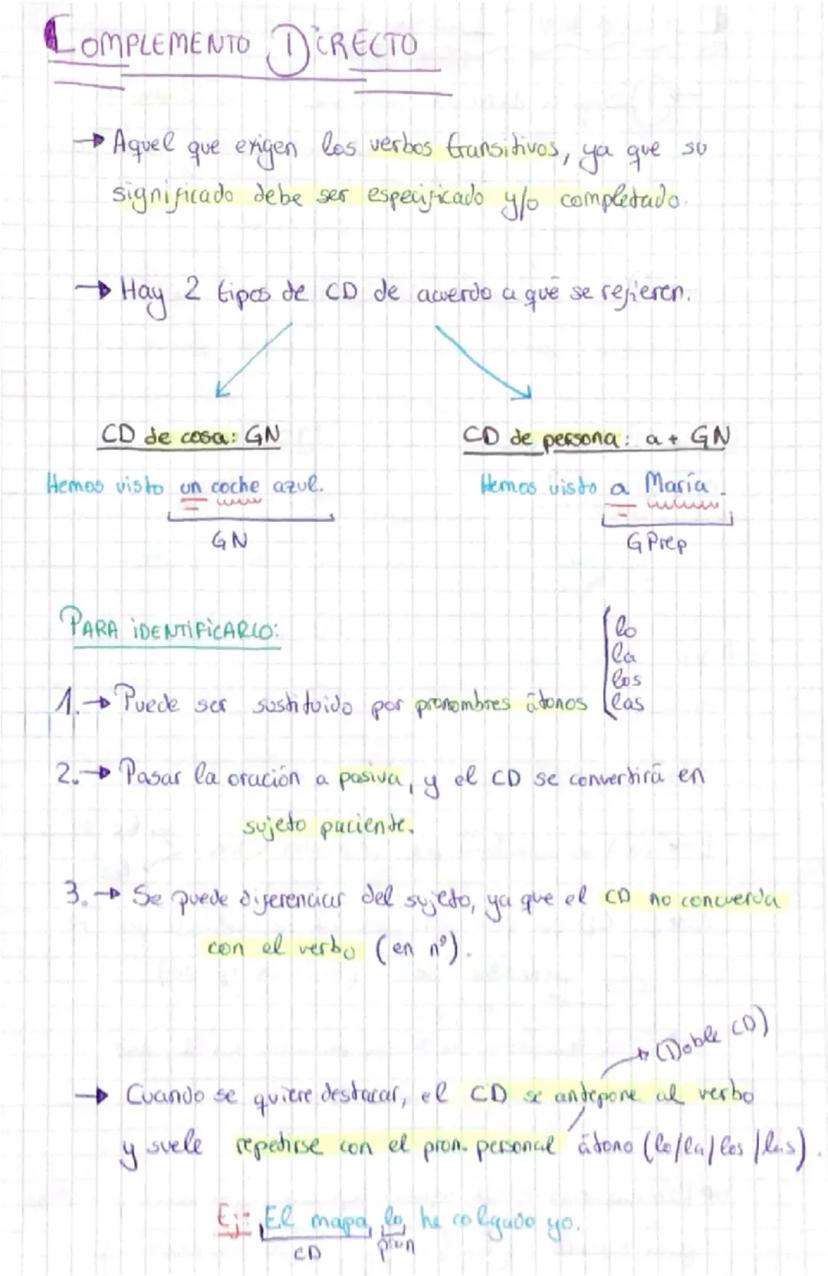 COMPLEMENTO DIRECTO
→ Aquel que exigen los verbos transitivos, ya que su
significado debe ser especificado y/o completado.
→ Hay 2 tipos de CD de acuerdo a qué se refieren.
CD de cosa: GN
CD de persona: a + GN
Hemos visto un coche azul.
Hemos visto a María.
GN
GPrep
PARA IDENTIFICARLO:
lo
la
los
las
1. → Puede ser sustituido por pronombres átonos
2. → Pasar la oración a pasiva, y el CD se convertirá en
sujeto paciente.
3. → Se puede diferenciar del sujeto, ya que el CD no concuerda
con el verbo (en nº).
→ (Doble CD)
→ Cuando se quiere destacar, el CD se antepone al verbo
y suele repetirse con el pron. personal átono (lo/la/los/las).
Ej: El mapa, lo he colgado yo.
CD pron